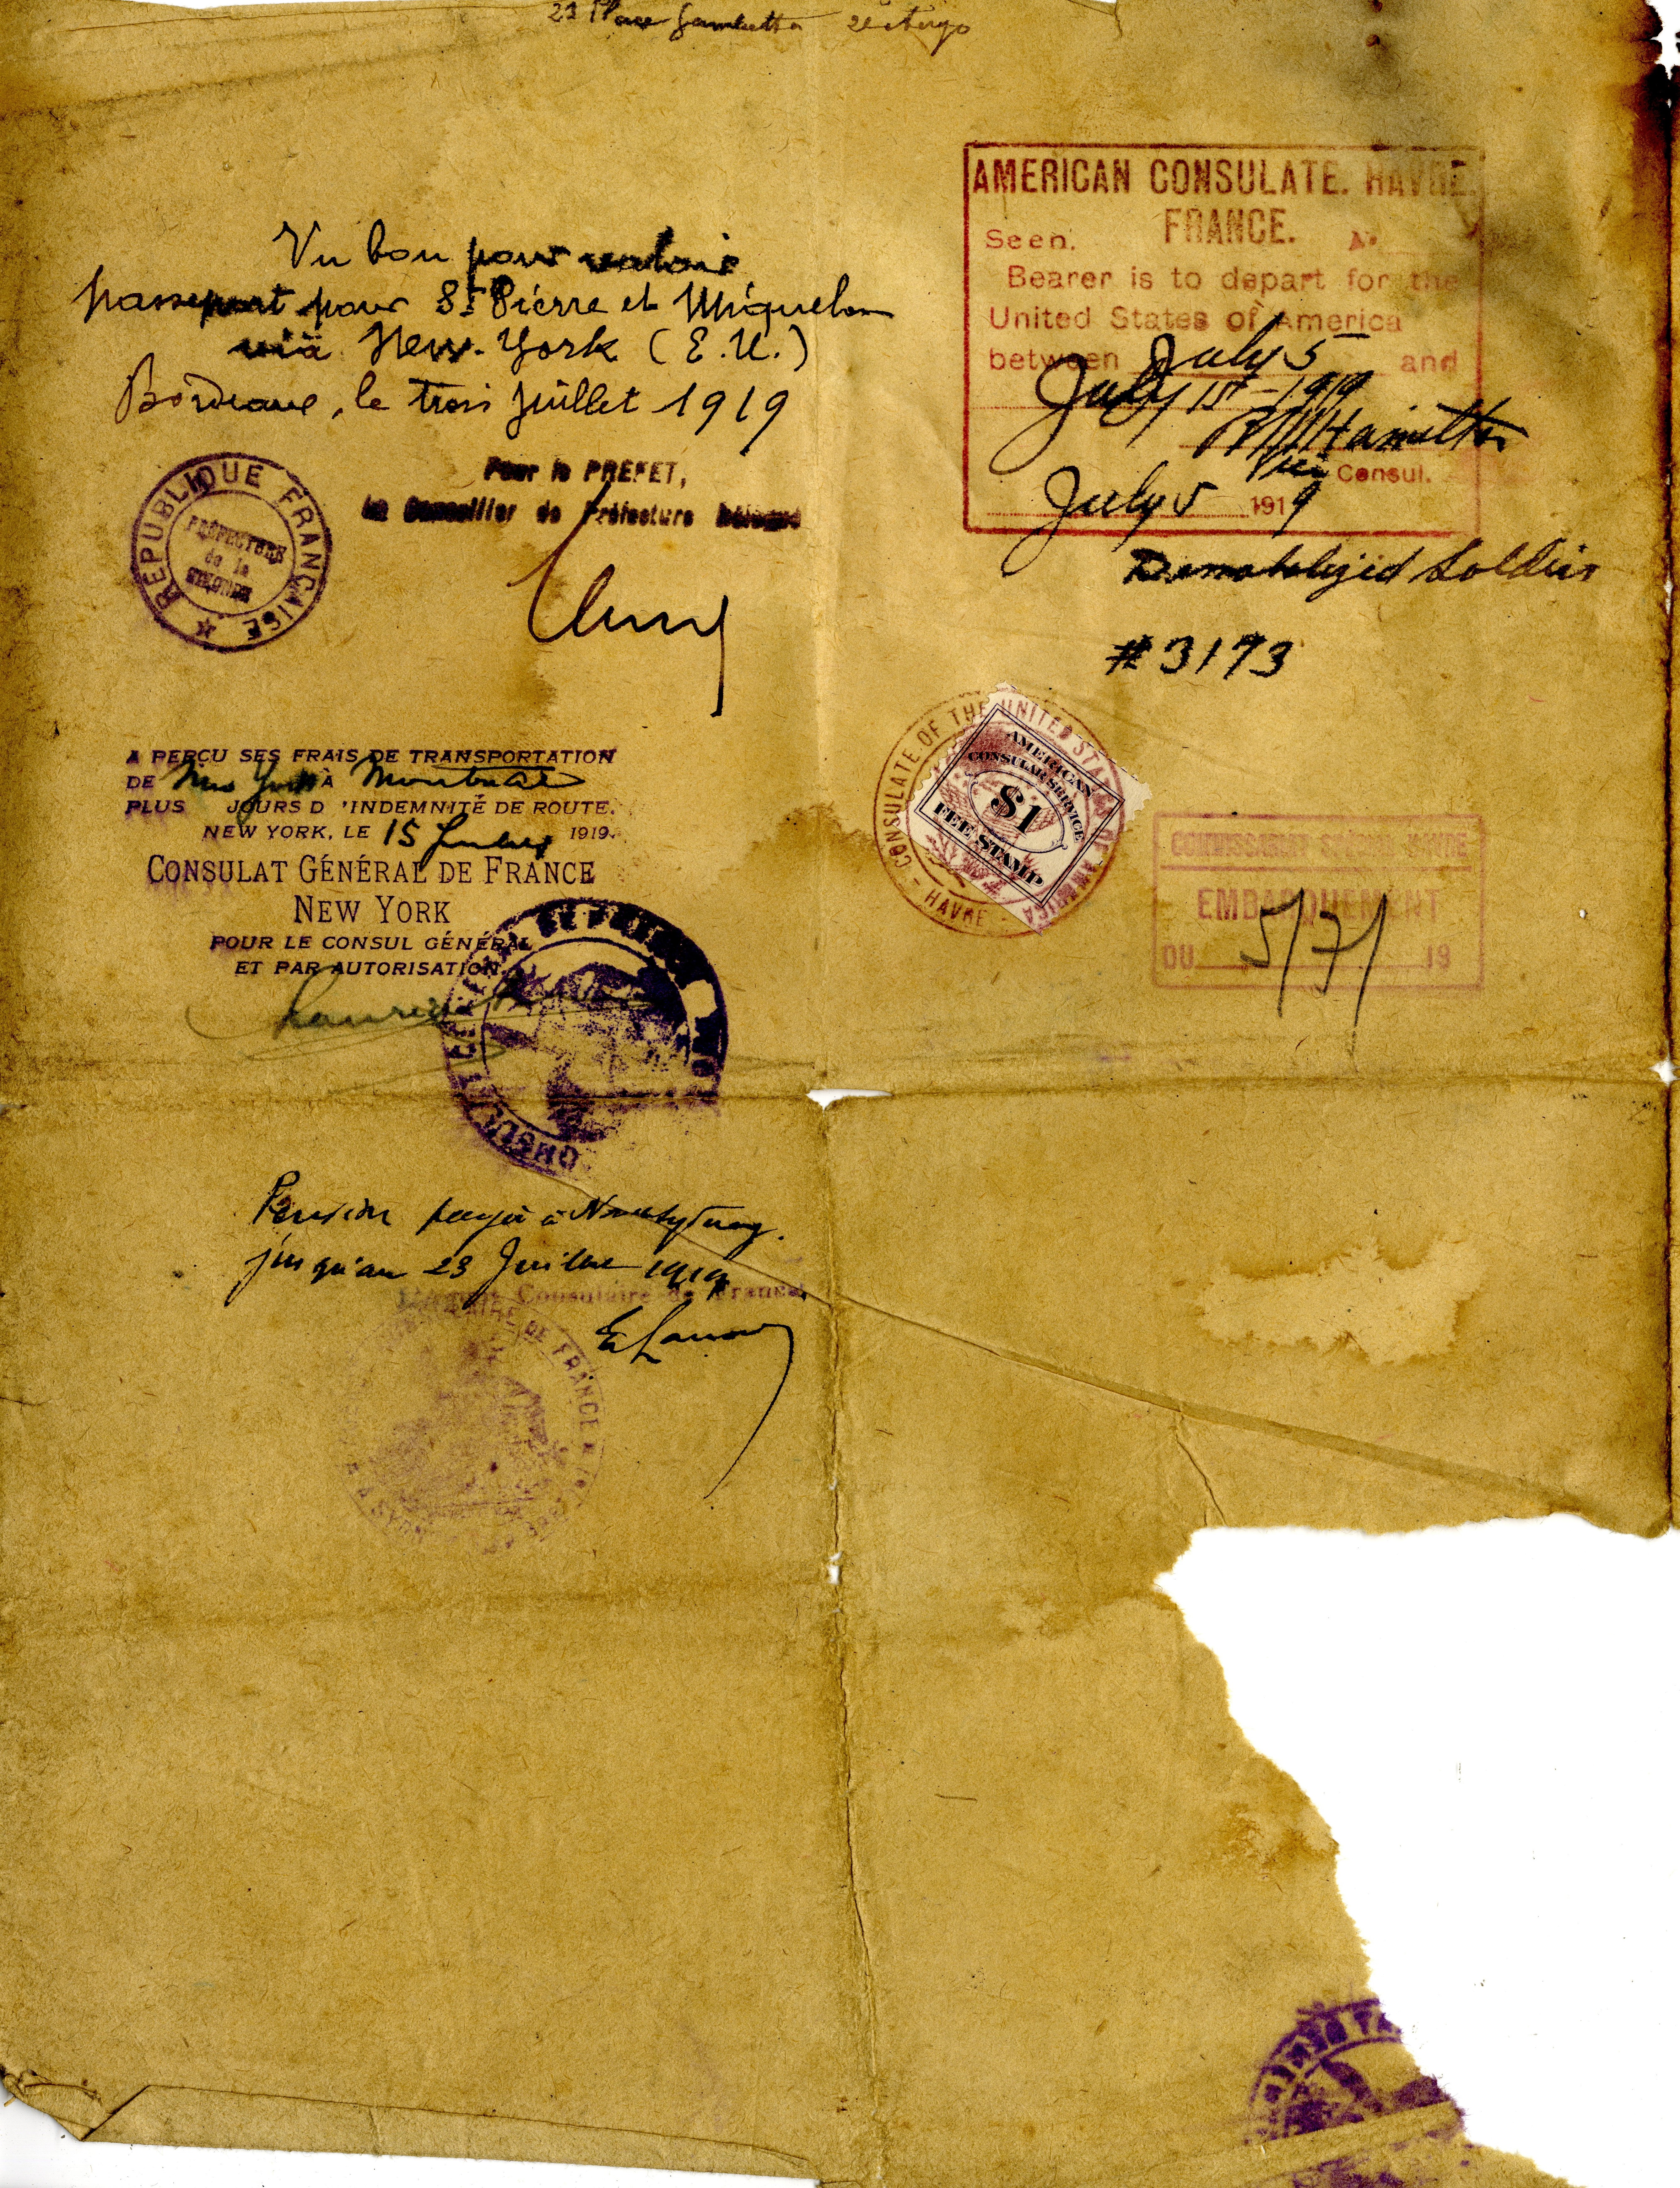 23 Place Gambetta 2e étage
Vu bon pour valoir
passeport pour St Pierre et Miquelon
via New-York (E.U.)
Bordeaux, le trois juillet 1919
Pour le PRÉFET,
Le Conseiller de Préfecture Délégué
REPUBLIQUE FRANÇAISE
PRÉFECTURE
de la
GIRONDE
A PERÇU SES FRAIS DE TRANSPORTATION
DE New York À Montreal
PLUS JOURS D'INDEMNITÉ DE ROUTE.
NEW YORK, LE 15 1919.
CONSULAT GÉNÉRAL DE FRANCE
NEW YORK
POUR LE CONSUL GÉNÉRAL
ET PAR AUTORISATION.
Pension payée à North Sydney.
jusqu'au 23 Juillet 1919
Consulaire de France
DE FRANCE
AMERICAN CONSULATE. HAVRE.
FRANCE.
Seen.
Bearer is to depart for the
United States of America
between July 5 and
July 15 - 1919
Hamilton
Vice Consul.
July 5 1919
Demobilized Soldier
#3173
CONSULATE OF THE UNITED STATES OF AMERICA
HAVRE
AMERICAN
CONSULAR SERVICE
$1
FEE STAMP
EMBARQUEMENT
DU 5/7/ 19